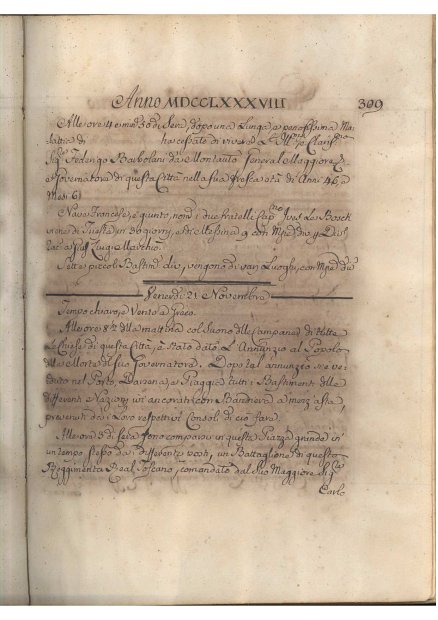 Anno MDCCLXXXVIII 309
Alle ore 4 e min 30 di Sera, dopo una Lunga, e penosissima Ma
lattia di ha cessato di vivere L'Ill.mo Claris.mo
Sig.r Federigo Barbolani da Montauto General Maggiore, e
Governatore di questa Città nella sua fresca età di Anni 46, e
Mesi 6
Nave Francese, è giunto, nom i due fratelli Cap.no
viene di in 36 giorni, e da Messina 9 con
Luigi
Sette piccoli Bastim.ti div. vengono di var. Luoghi, con
Venerdì 21 Novembre
Tempo chiaro, e Vento a Greco.
Alle ore 8½ della mattina col Suono delle Campane di tutte
Le Chiese di questa Città, è stato dato L'Annunzio al Popolo
della Morte del suo Governatore. Dopo tal annunzio si è ve
duto nel Porto, Darsena, e Spiaggia tutti i Bastimenti delle
differenti Nazioni ivi ancorati con Bandiera a mezz'asta,
prevenuti dai Loro respettivi Consoli di ciò fare.
Alle ore 3 di sera sono comparsi in questa Piazza grande in
un tempo stesso da differenti posti, un Battaglione di questo
Reggimento Real Toscano, comandato dal suo Maggiore Sig.re
Carlo